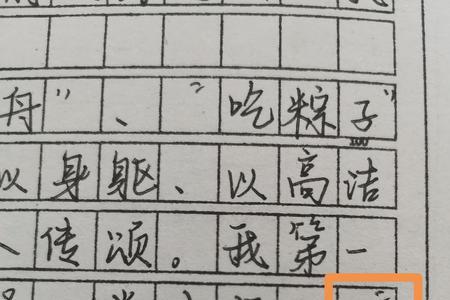 舟”、“吃粽子”
100
以身躯、以高洁
人传颂。我第一